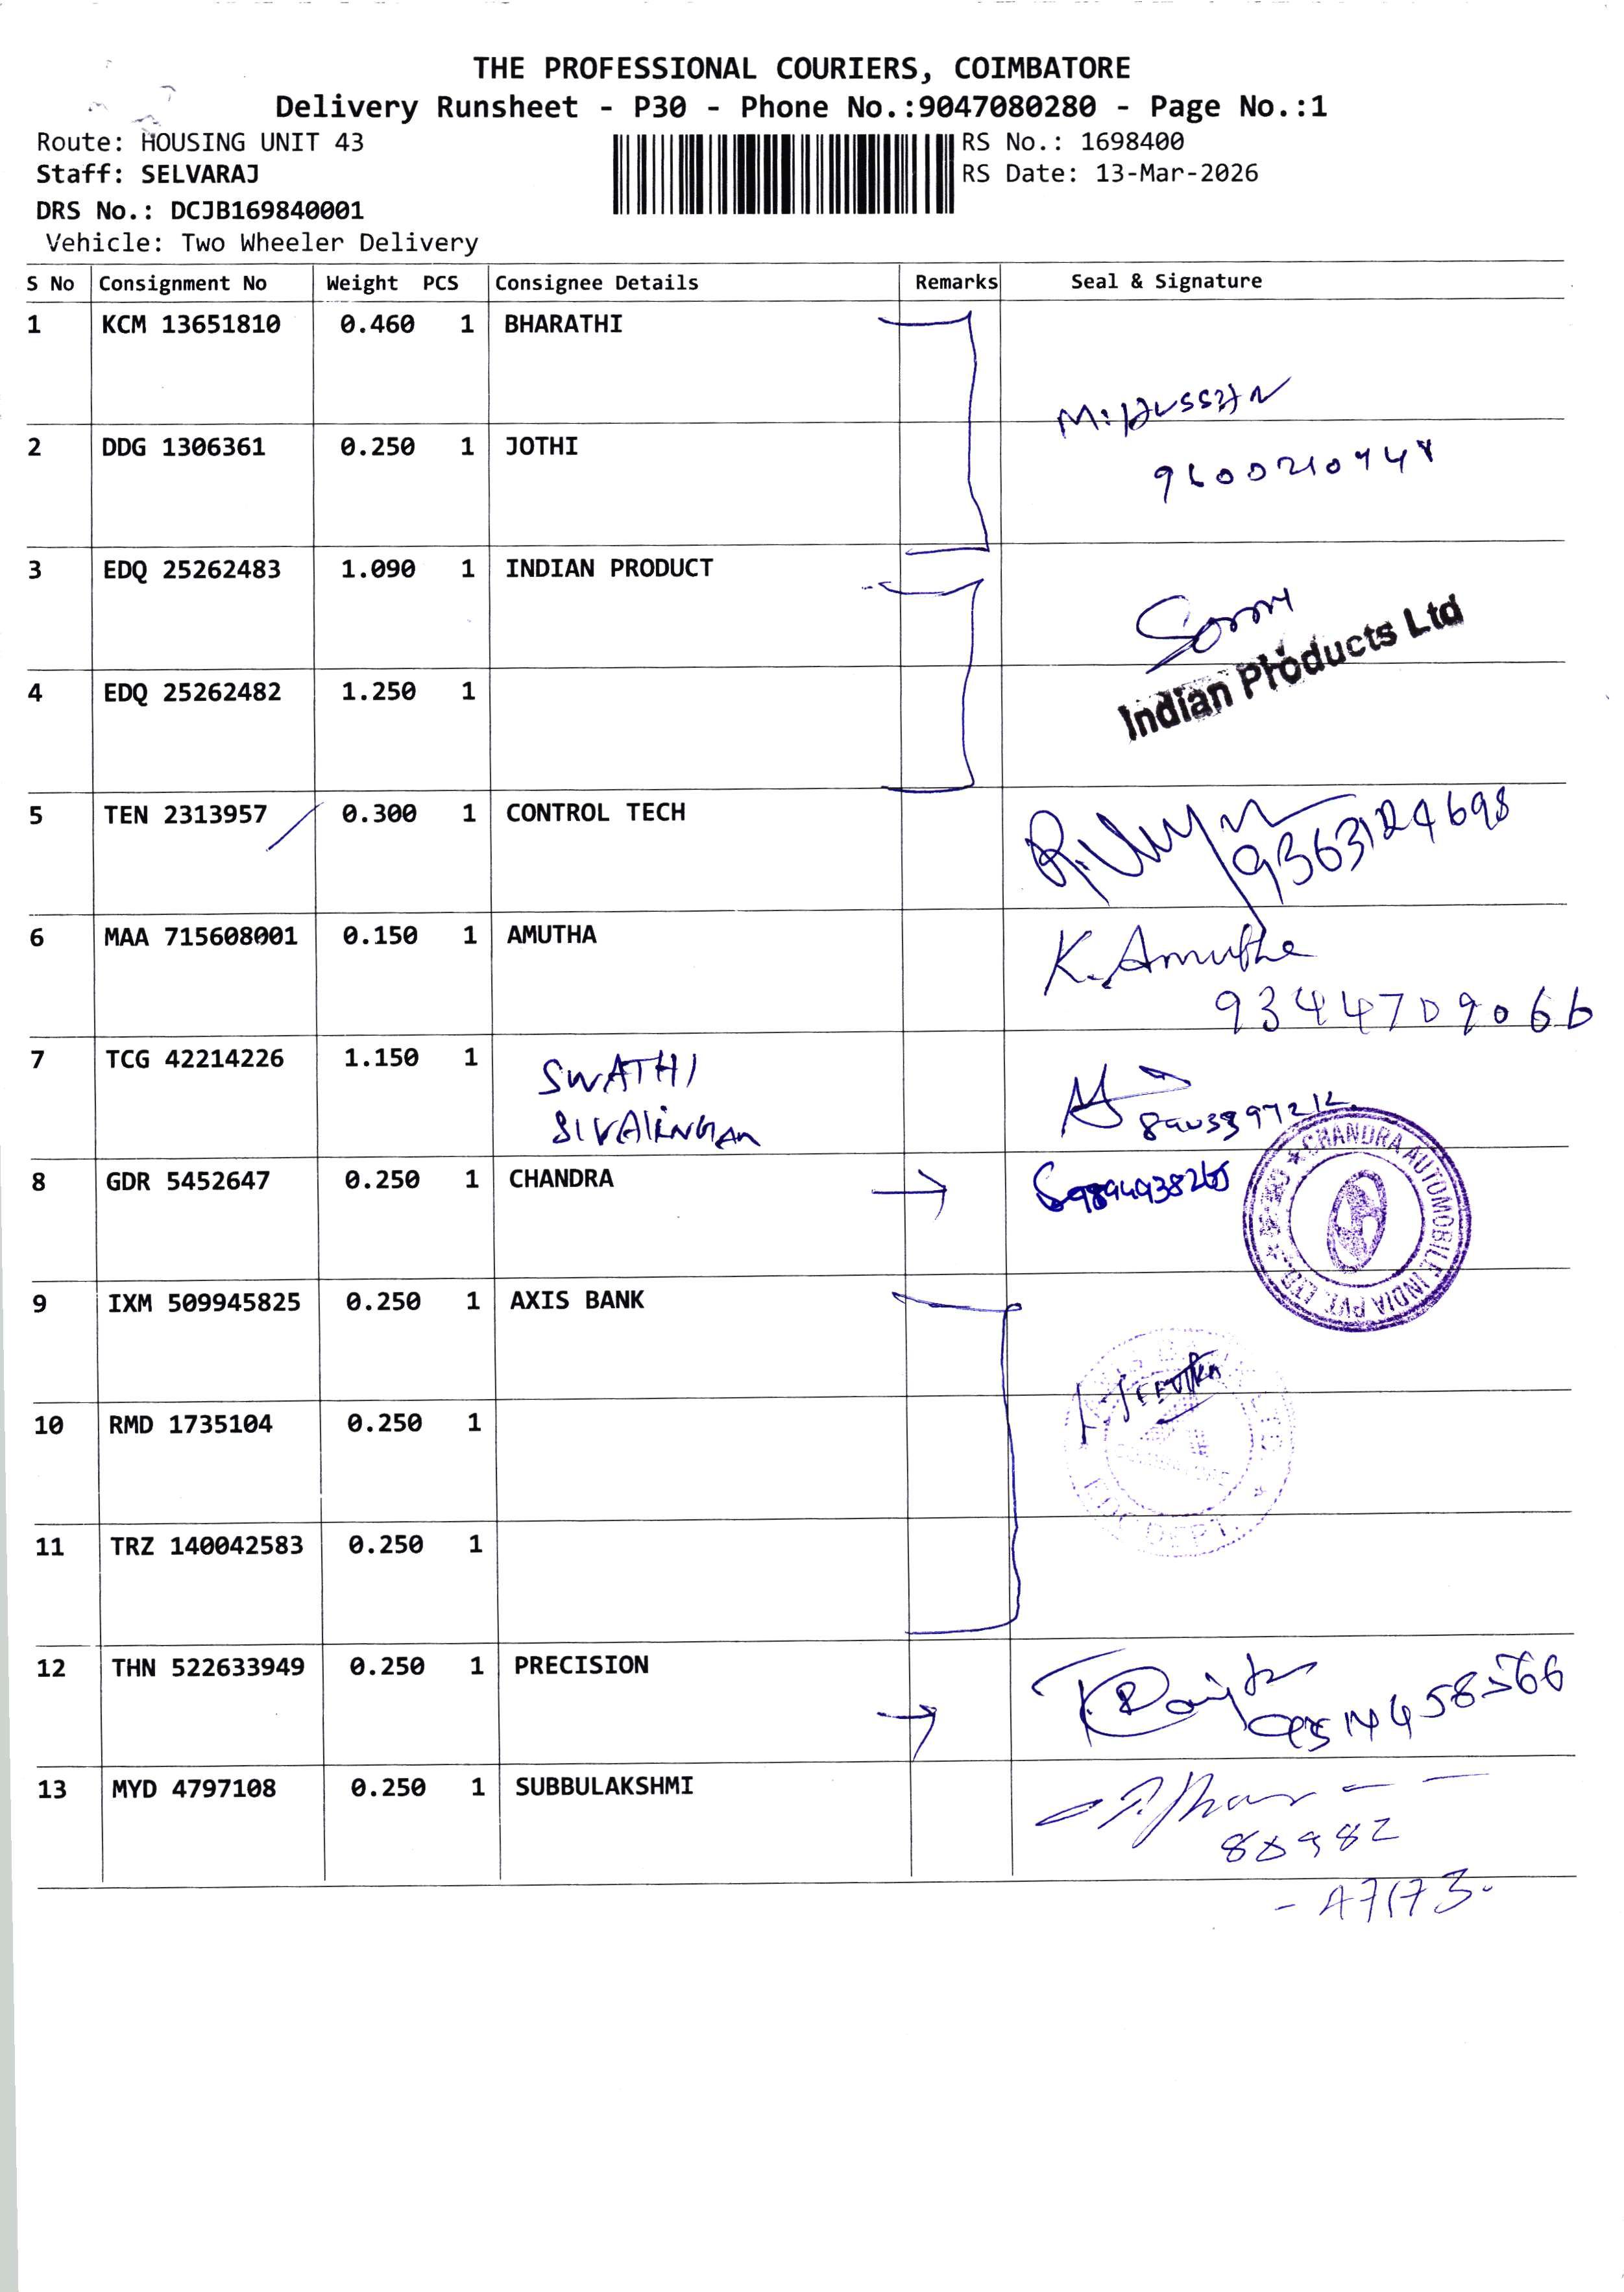 THE PROFESSIONAL COURIERS, COIMBATORE
Delivery Runsheet - P30 - Phone No.:9047080280 - Page No.:1
Route: HOUSING UNIT 43
RS No.: 1698400
Staff: SELVARAJ
RS Date: 13-Mar-2026
DRS No.: DCJB169840001
Vehicle: Two Wheeler Delivery
S No Consignment No Weight PCS Consignee Details Remarks Seal & Signature
1 KCM 13651810 0.460 1 BHARATHI
M. Hussain
2 DDG 1306361 0.250 1 JOTHI
3 EDQ 25262483 1.090 1 INDIAN PRODUCT
Indian Products Ltd
4 EDQ 25262482 1.250 1
5 TEN 2313957 0.300 1 CONTROL TECH
9363124698
6 MAA 715608001 0.150 1 AMUTHA K. Amutha
9344709066
7 TCG 42214226 1.150 1 SWATHI
SIVALINGAM
8 GDR 5452647 0.250 1 CHANDRA
CHANDRA AUTOMOBILE INDIA PVT. LTD.
9 IXM 509945825 0.250 1 AXIS BANK
10 RMD 1735104 0.250 1
DEPT.
11 TRZ 140042583 0.250 1
12 THN 522633949 0.250 1 PRECISION
13 MYD 4797108 0.250 1 SUBBULAKSHMI
80982
- 47173.